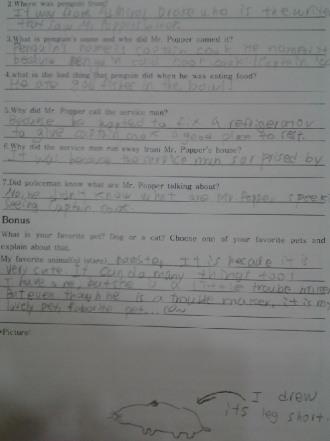 2.Where was penguin from?
It was from Admiral Drake who is the write
than saw Mr. Popper's
3.What is penguin's name and who did Mr. Popper named it?
Penguin's name is captain cook. He named it
because penguin cook captain
4.what is the bad thing that penguin did when he was eating food?
He ate gold fishes in the bowl
5.Why did Mr. Popper call the service man?
Because he wanted to fix a refrigerator
to give captain cook a good place to rest.
6.Why did the service man run away from Mr. Popper's house?
It was because the service man surprised by
7.Did policeman know what are Mr. Popper talking about?
No, he didn't know what are Mr. Popper
being Captain cook.
Bonus
What is your favorite pet? Dog or a cat? Choose one of your favorite pets and
explain about that.
My favorite animal(s) (are) hamster, It is because it is
very cute it can do many things too!
I have one, but she is a little trouble maker
But even though he is a trouble maker, it is my
lovely pet, favorite pet...
*Picture
I drew
its leg short.